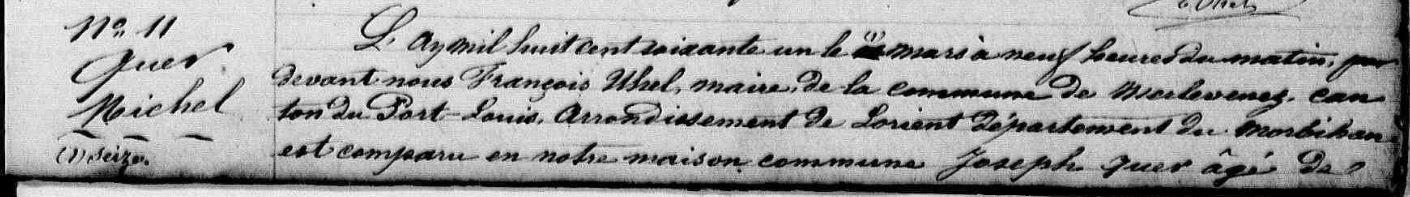 No 11
Quer
Michel
(1) seize.
L'an mil huit cent soixante un le (1) mars à neuf heures du matin, par
devant nous François Uhel, maire, de la commune de Merlevenez, can
ton du Port-Louis, Arrondissement de Lorient département du Morbihan
est comparu en notre maison commune Joseph Quer âgé de